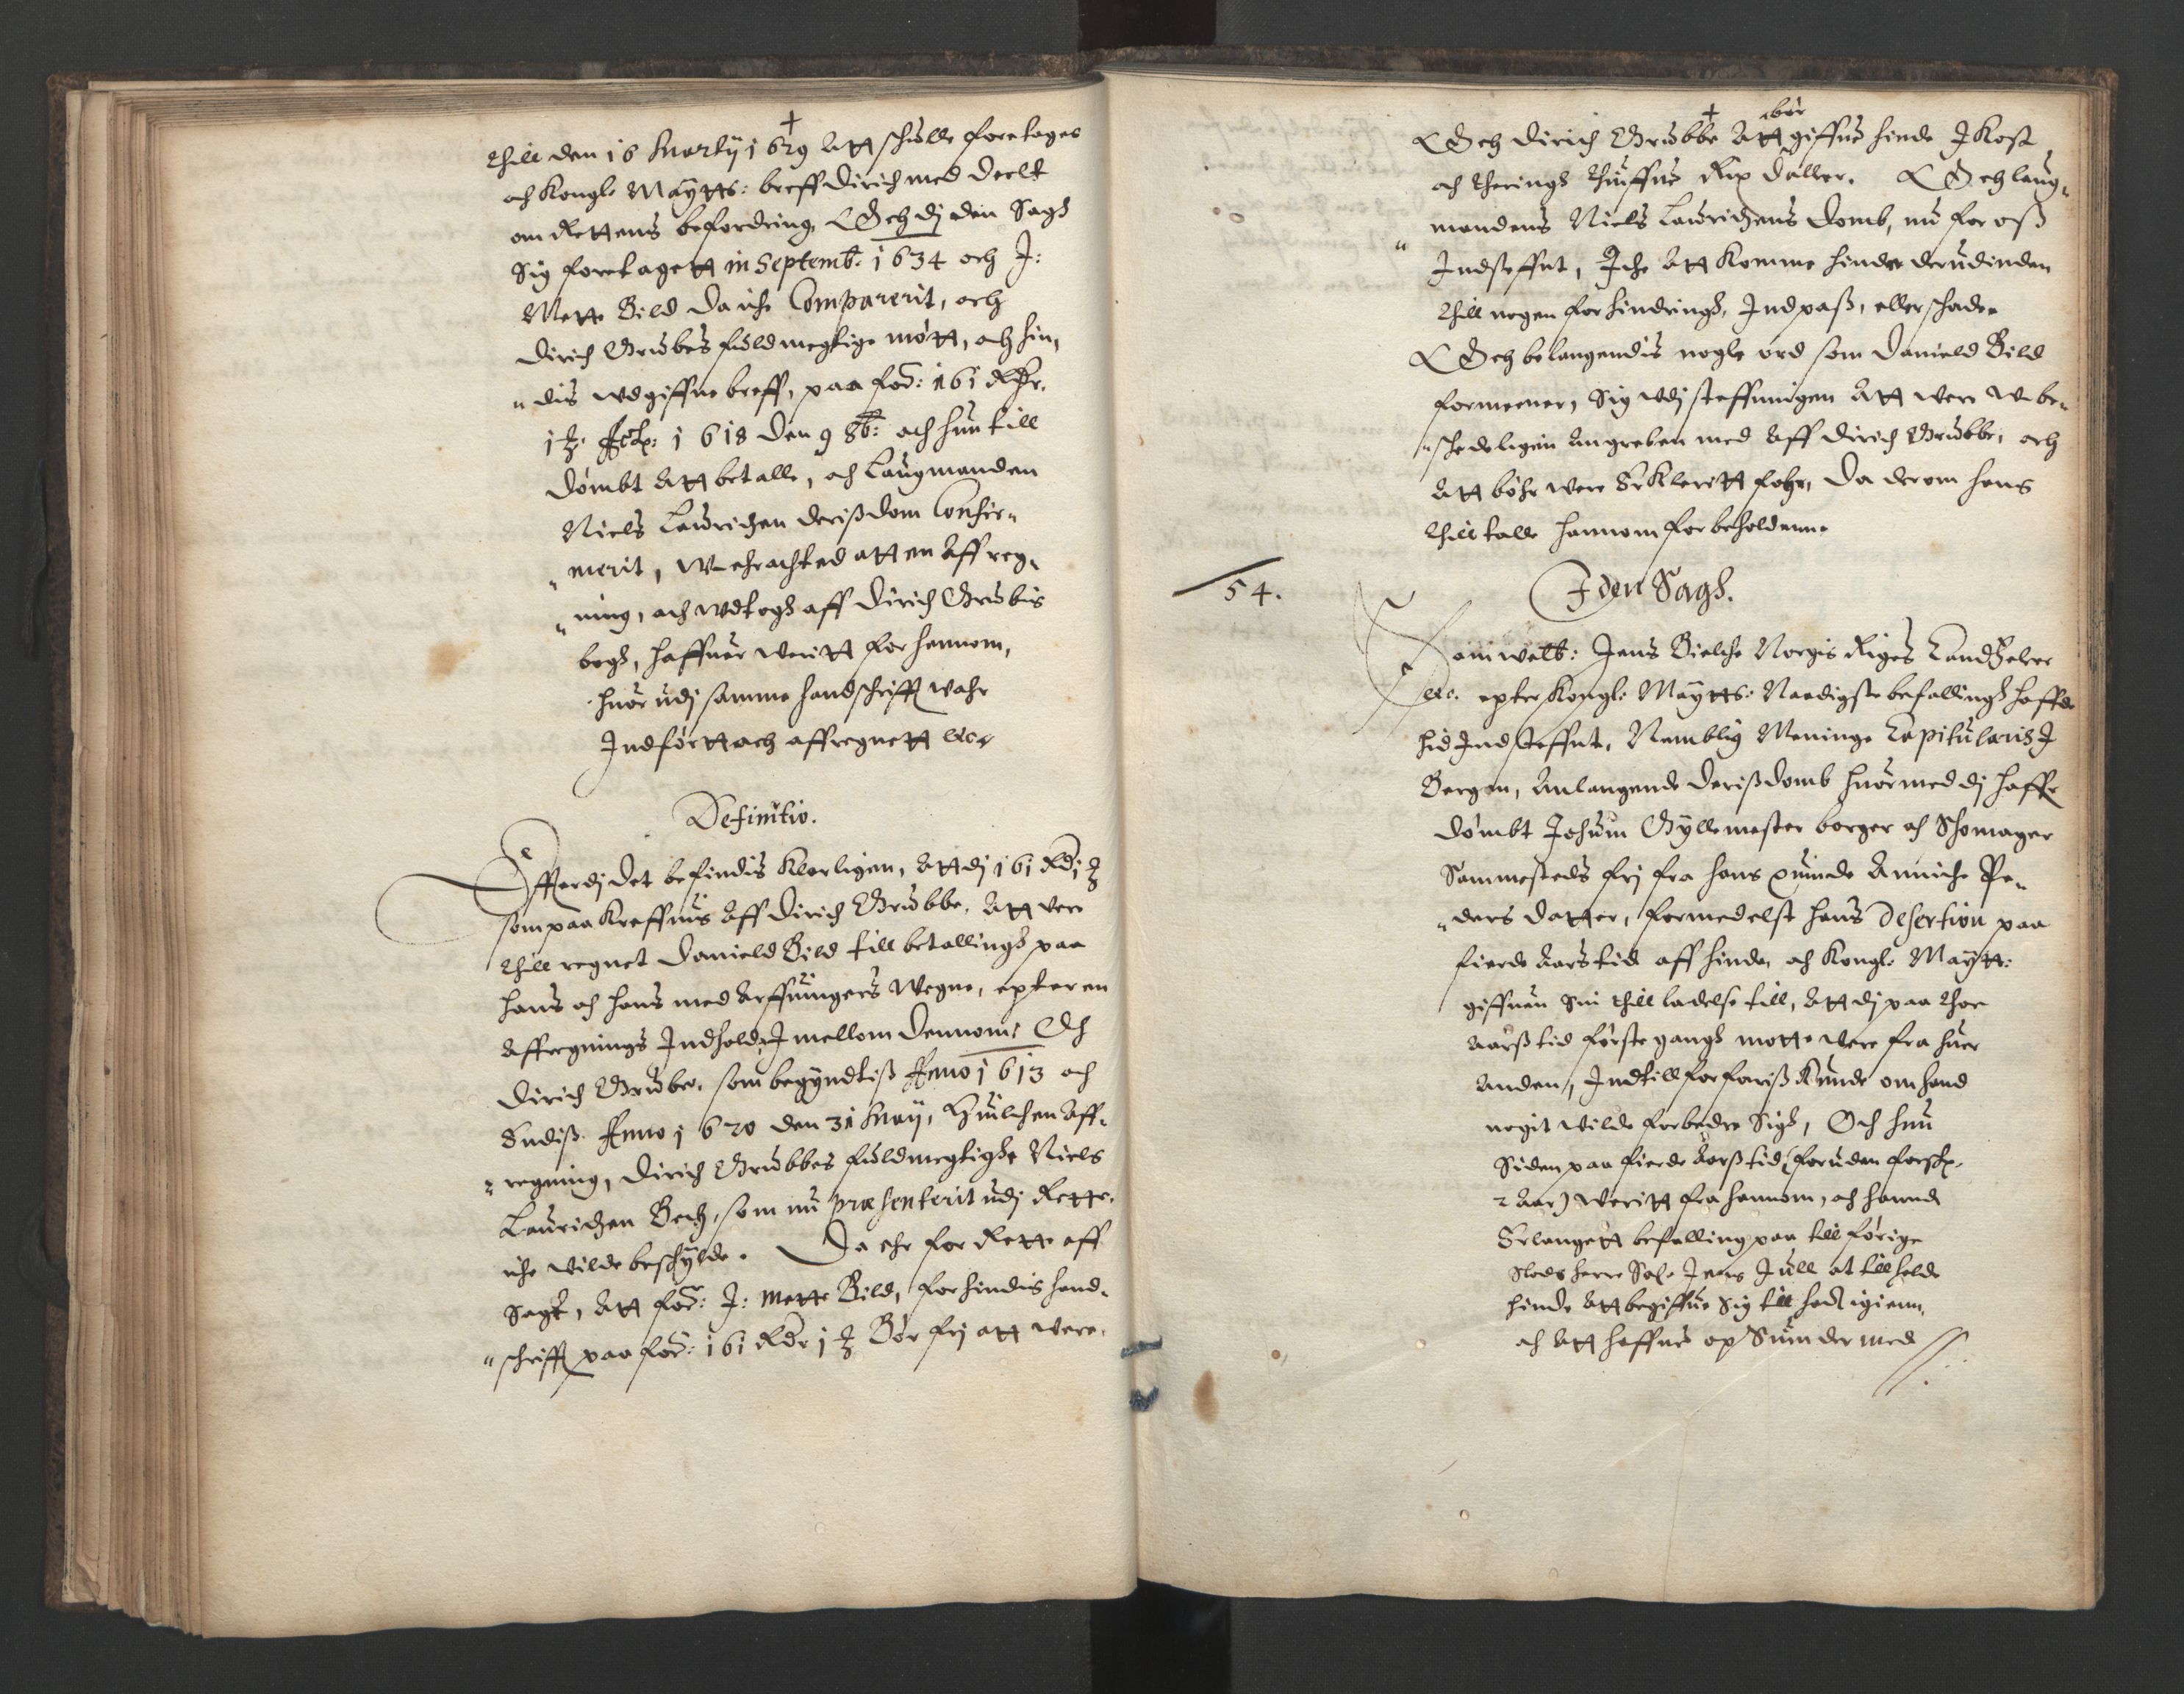 thill den 16 Martij 1629 att schulle foretages
och Kongl: Maÿtts: breff Dirich med deelt
om Rettens befordring, Och dj den Sagh
Sig foretagett in Septemb: 1634 och J:
Mette Bild da iche Comparerit, och
Dirich Grubes fuldmegtige mött, och hin„
„dis wdgiffne breff, paa for: 161 Rdr.
1 ʒ. 1618 den 9 8b: och hun till
dömbt att betalle, och Laugmanden
Niels Lauridzen derisz dom Confir„
„merit, W-ehrachted att en Affreg„
„ning, och wdtogh aff Dirich Grubis
bogh, haffuer weritt for hannom,
huor udj samme handschrifft wahr
Indförtt och affregnett etc.
Definitio.
Effterdj det befindis Klarligen, att dj 161 Rd: j ʒ
som paa Kreffuis aff Dirich Grubbe, att vere
thill regnet Danield Bild till betallingh paa
hans och hans med arffuingers Wegne, epter en
Affregnings Indhold, Imellom dennom, Och
Dirich Grube, som begÿndtisz Anno 1613 och
Endisz Anno 1620 den 31 Maÿ, Huilchen Aff„
„regning, Dirich Grubbes fuldmegtighe Niels
Lauridzen Bech, som nu præsenterit udj Rette,
iche wilde beschÿlde. Da ehr for Rette aff
Sagt, att for: J: Mette Bild, for hindis hand„
„schrifft paa for: 161 Rdr j ʒ Bör frj att were,
Och Dirich Grubbe bör att giffue hinde J Kost
och thering thuffue Rix daller. Och laug„
„mandens Niels Lauridzens domb, nu for osz
Indsteffnt, Iche att Komme hinder derudinden
thill nogen forhindringh, Indpasz, eller schade.
Och belangendis nogle ord som Danield Bild
formeener, Sig udj steffningen att were w-be„
„schedeligen angreben med aff Dirich Grubbe, och
att böhr were Erkleritt fohr, da derom hans
thilltalle hannom forbeholdenn.
54.
I den Sagh.
Som welb: Jens Bielche Norgis Riges Landtzeler
etc. epter Kongl: Maÿtts: Naadigste befallingh haffde
hid Indsteffnt, Nemblig Meninge Capitularis J
Bergen, Anlangende derisz domb huormed dj haffr
dömbt Jochum Gÿllemester borger och Schomager
Sammesteds frj fra hans quinde Anniche Pe„
„ders datter, formedelst hans Desertion paa
fierde aars tid aff hinde, och Kongl: Maÿtt:
giffuen Sin thilladelse till, att dj paa thoe
aarsz tid förste gangh motte vere fra huer
anden, Indtill forfarisz Kunde om hand
nogit vilde forbedre Sigh, Och hun
Siden paa fierde aarsz tid (foruden forsch:
2 aar) weritt fra hannom, och hannd
Erlangett befalling paa till förige
Slods herre Sal: Jens Jull at tillholde
hinde att begiffue sig till hand igienn,
och att haffue op Sun der med